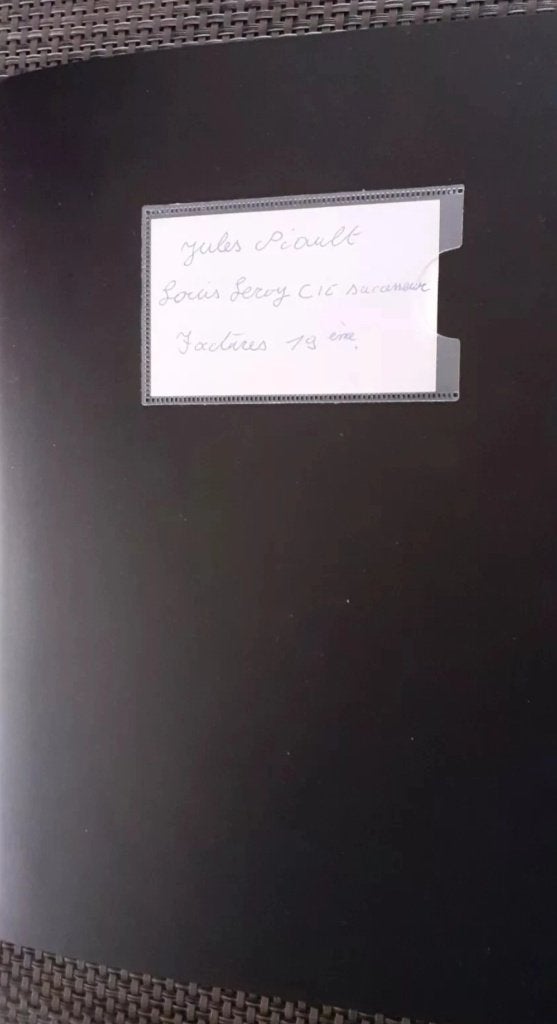 Jules Piault
Louis Leroy CIE successeur
Factures 19 ème